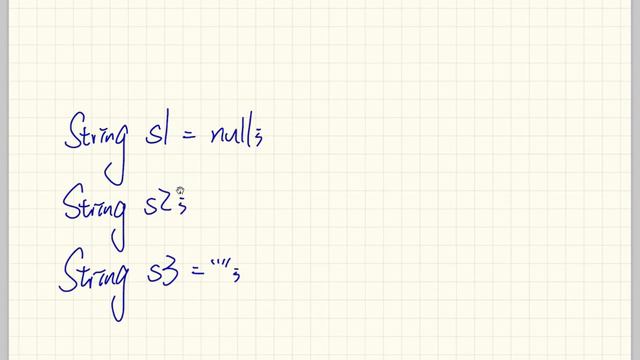 String s1 = null;
String s2;
String s3 = "";